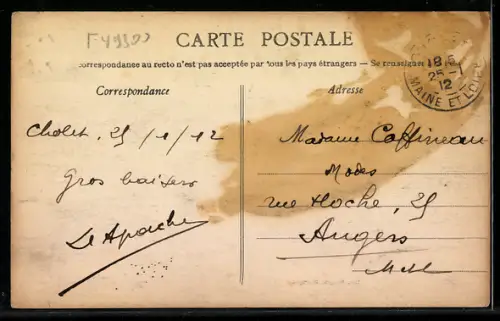 F49300
CARTE POSTALE
correspondance au recto n'est pas acceptée par tous les pays étrangers — Se renseigner
Correspondance
Adresse
18
25 - 1
12
MAINE ET LOIRE
Cholet 25/1/12
Gros baisers
Le Apache
Madame Caffineau
Modes
rue Hoche, 25
Angers
M et L